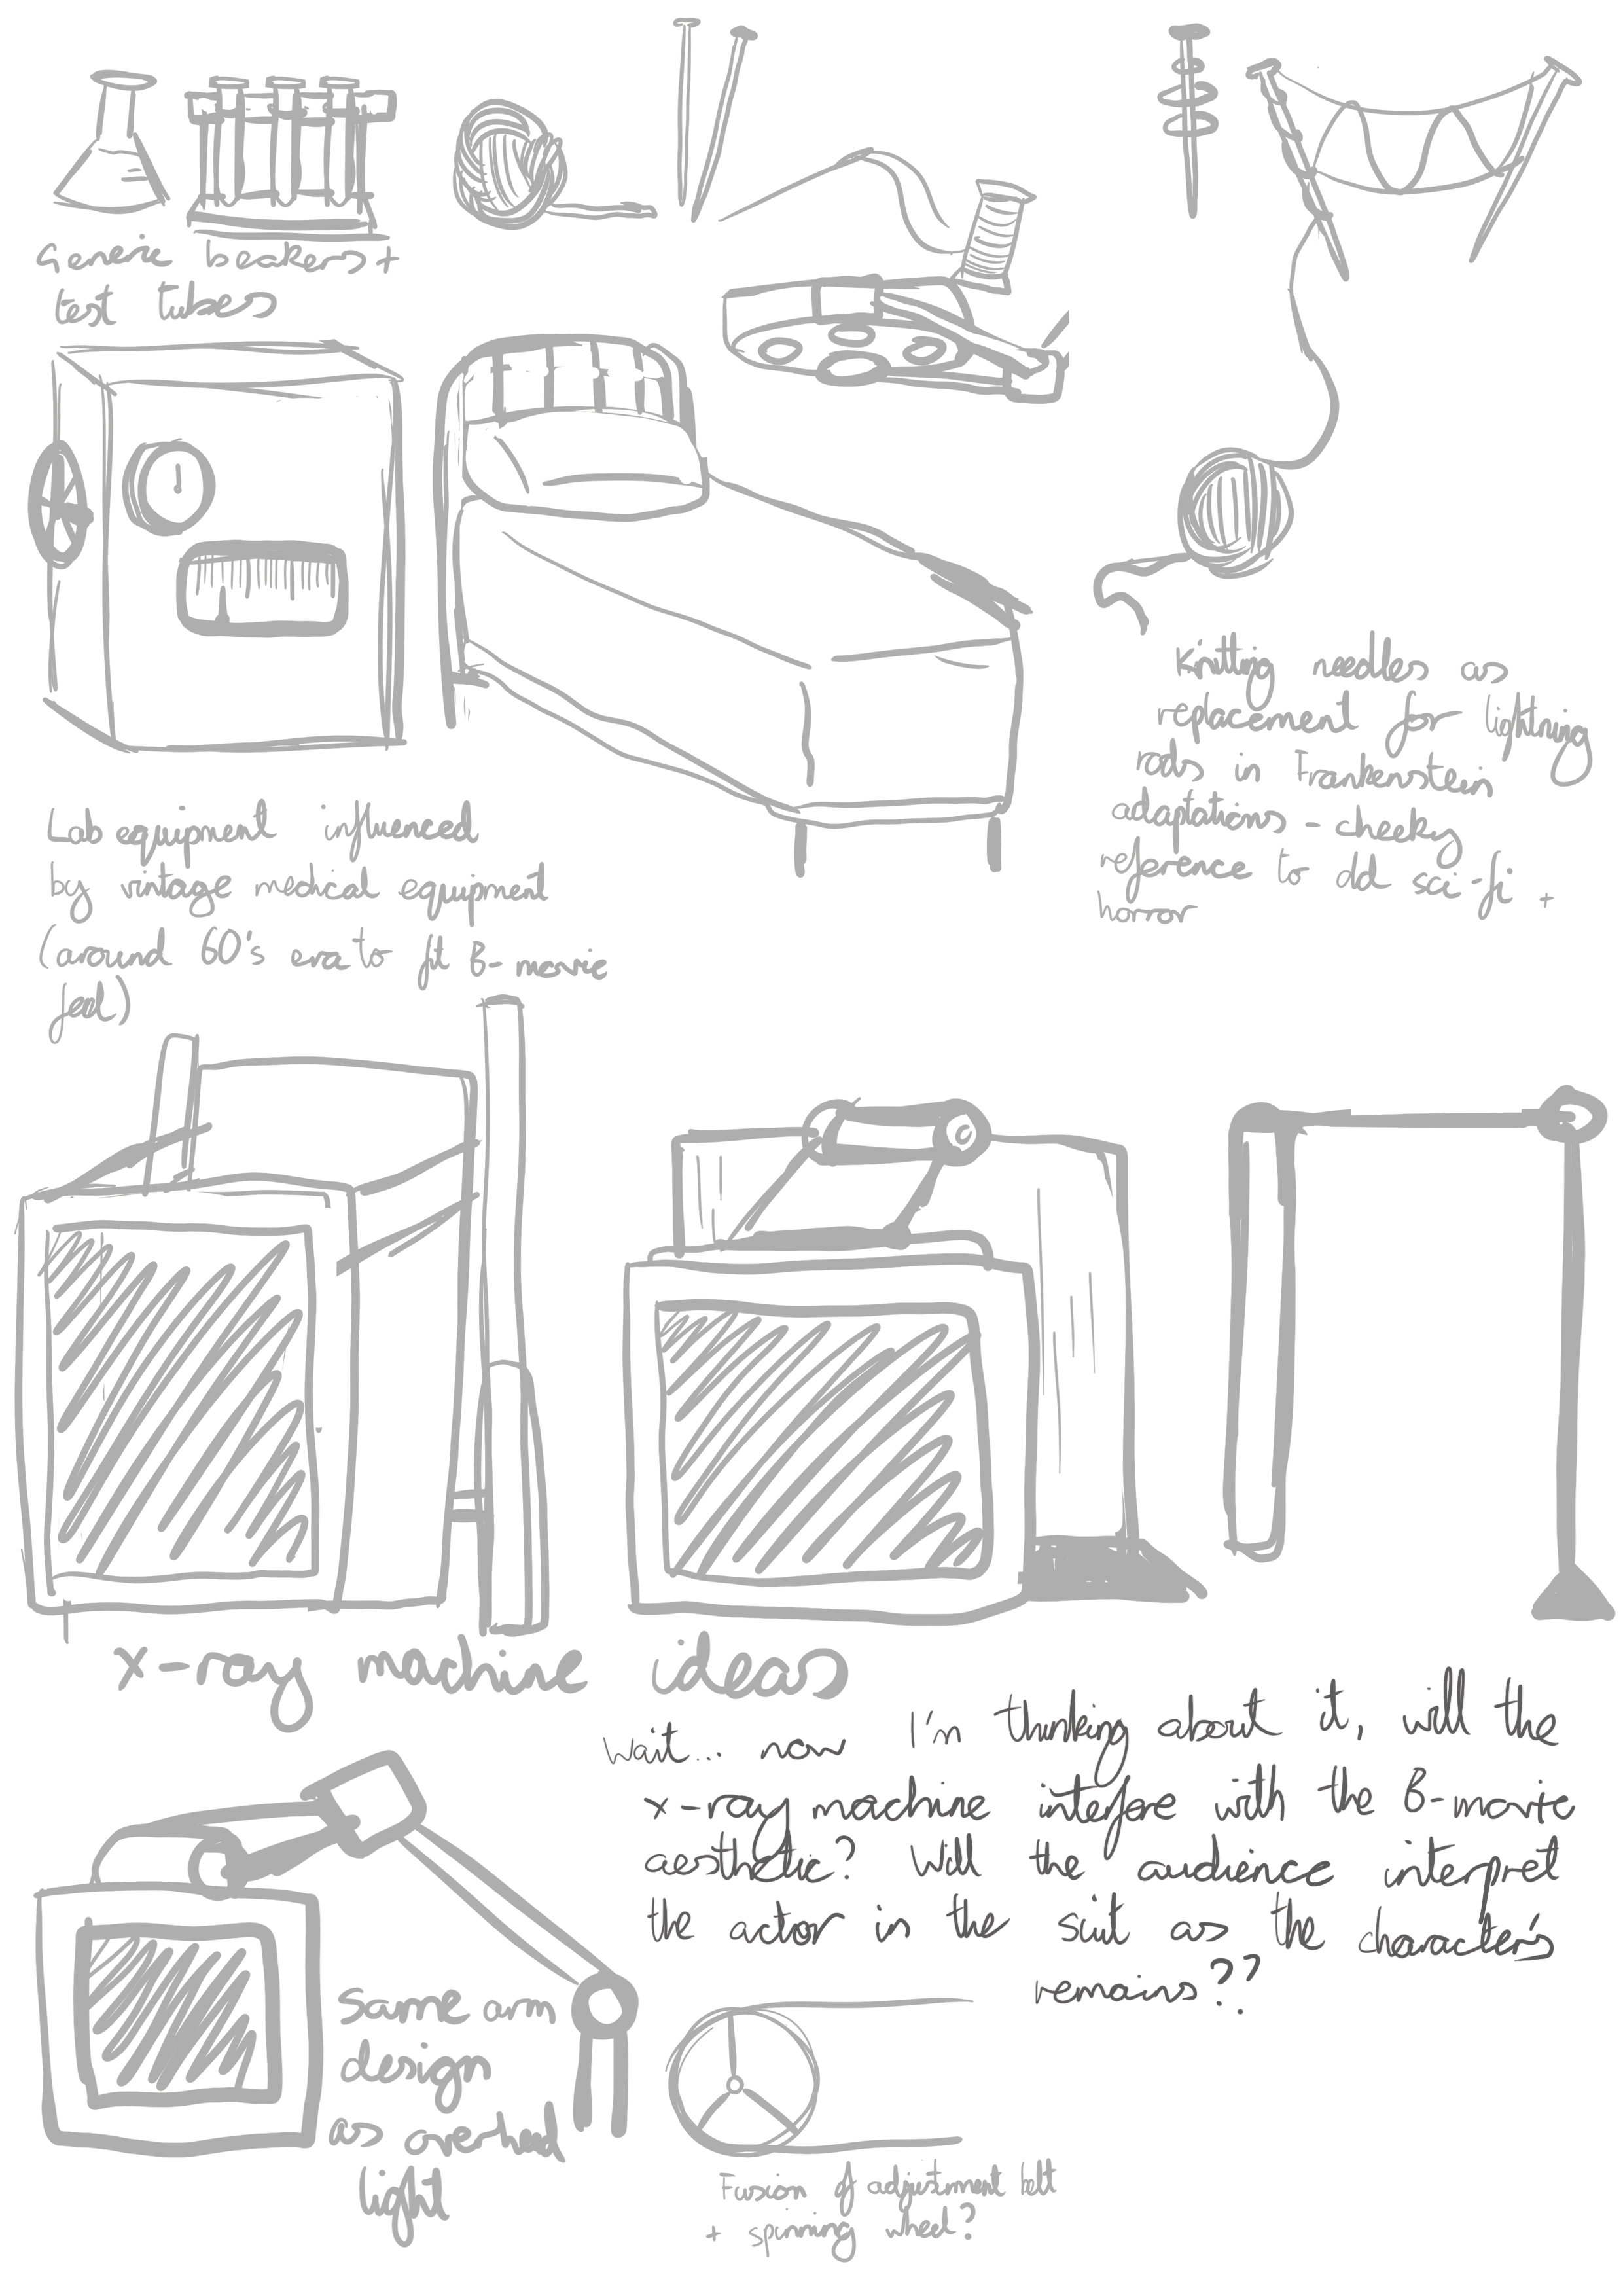 Generic beakers +
test tubes
Knitting needles as
replacement for lightning
rods in Frankenstein
adaptations - cheeky
reference to old sci-fi +
horror
Lab equipment influenced
by vintage medical equipment
(around 60's era to fit B-movie
feel)
x-ray machine ideas
Wait... now I'm thinking about it, will the
x-ray machine interfere with the B-movie
aesthetic? Will the audience interpret
the actor in the suit as the character's
remains??
Same arm
design
as overhead
light
Fusion of adjustment belt
+ spinning wheel?